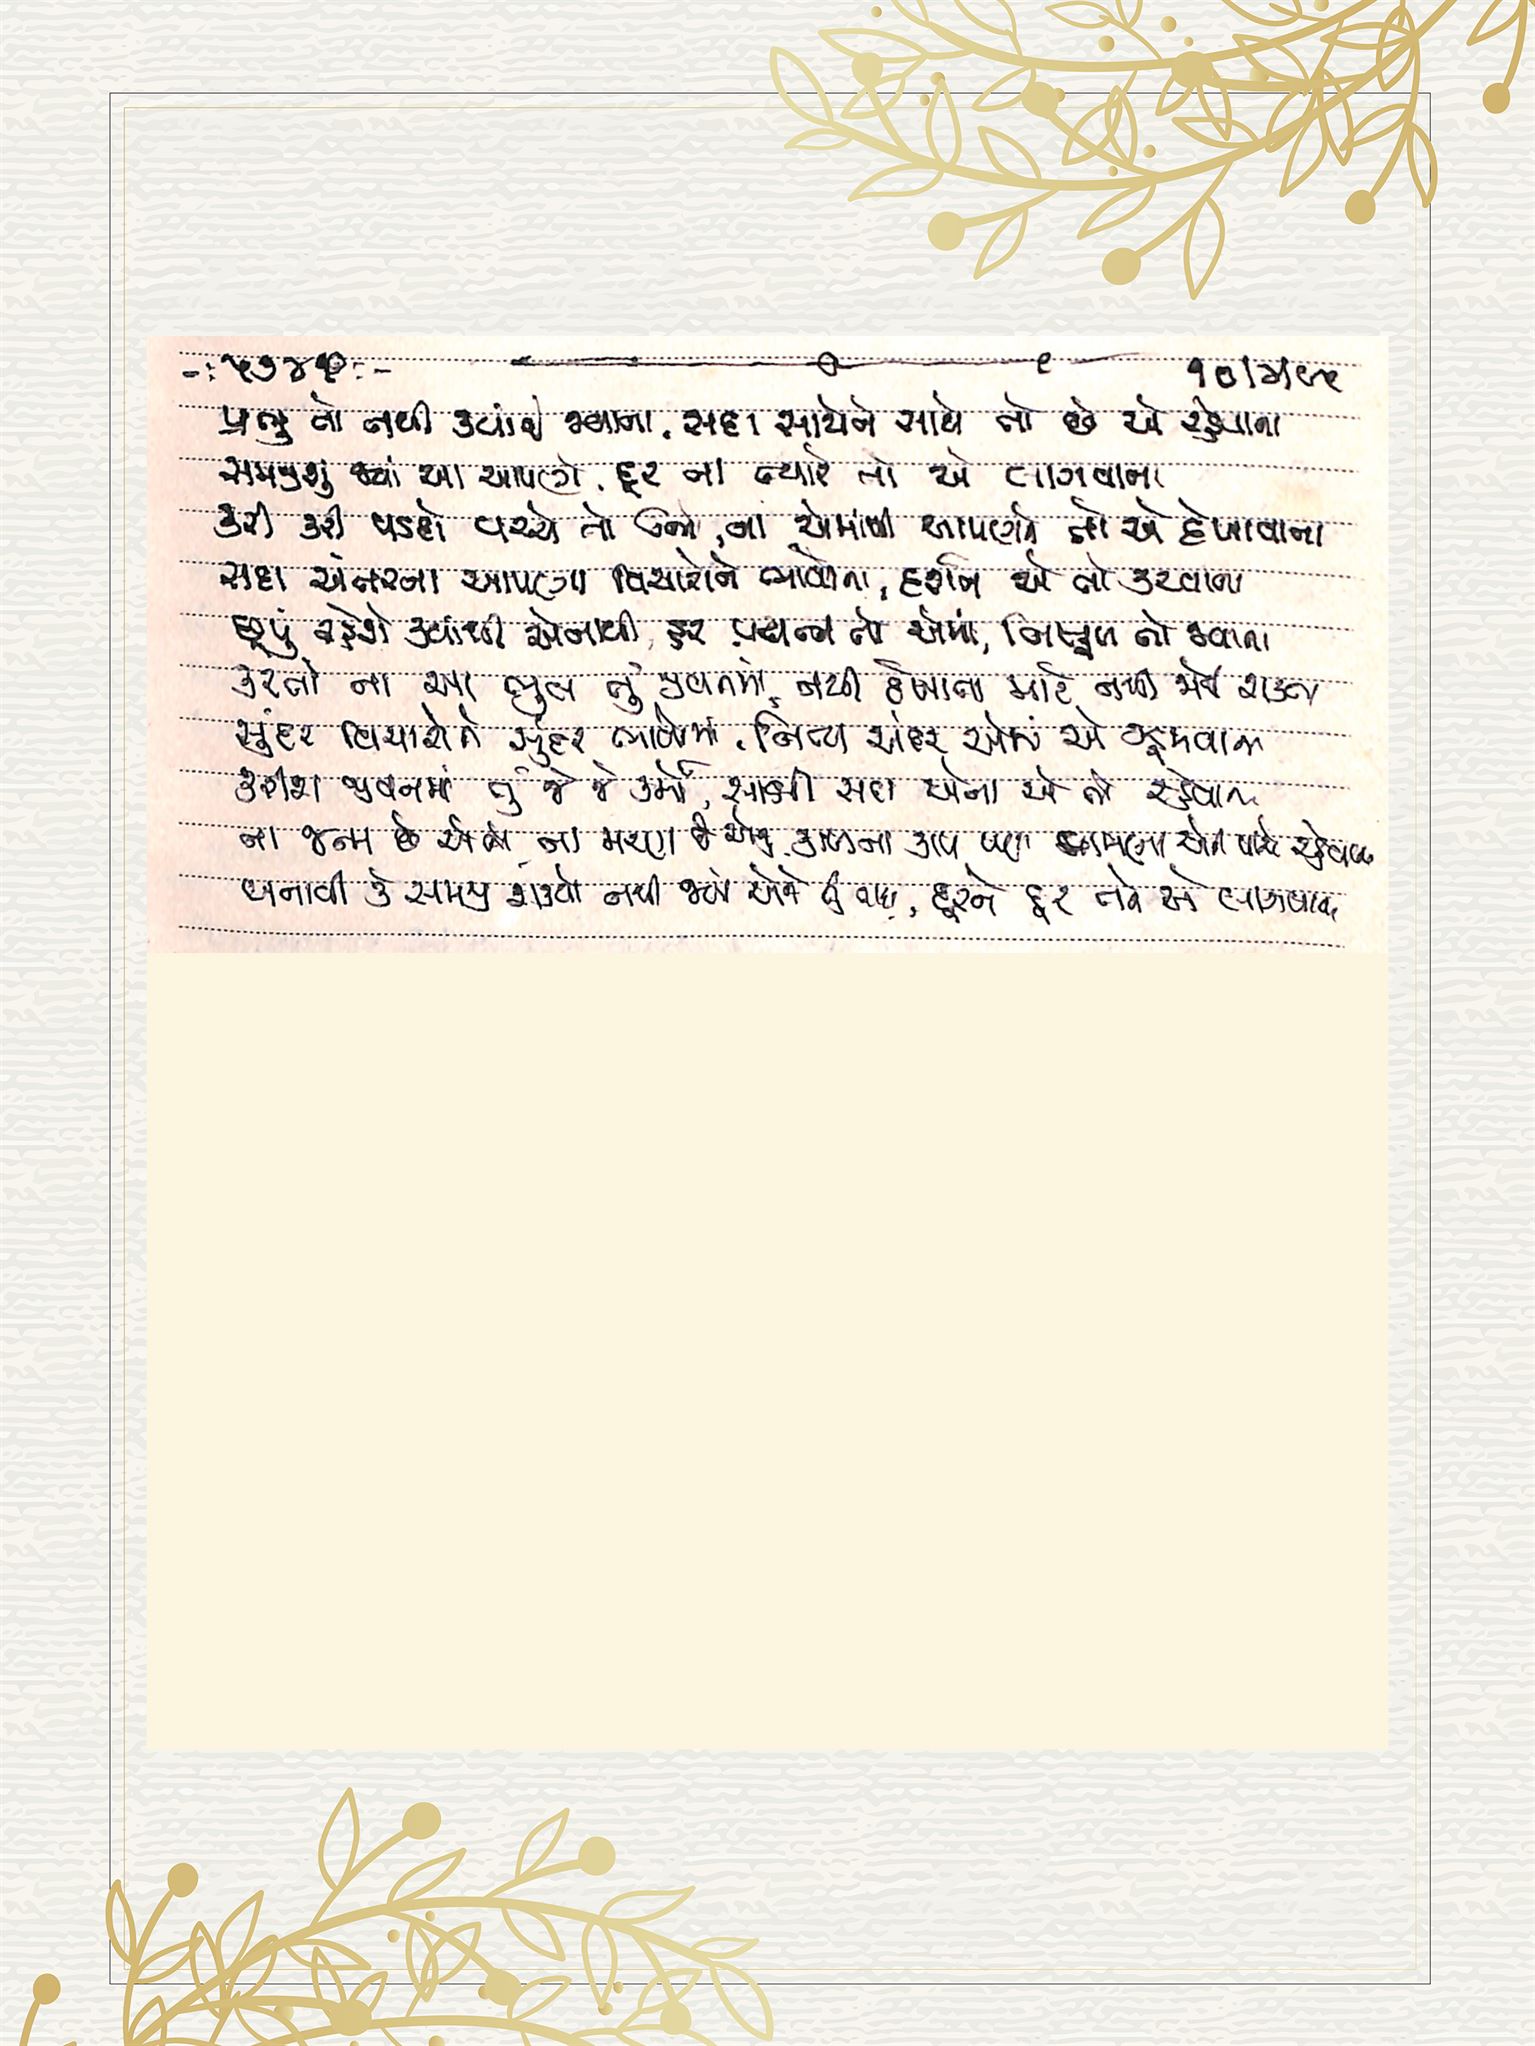 -: ૫૭૪૧ :-
પ્રભુ તો નથી ક્યાંયે જવાના, સદા સાથેને સાથે તો છે એ રહેવાના
સમજીશું જ્યાં આ આપણે, દૂર ના ત્યારે તો એ લાગવાના
કરી કરી પડદો વચ્ચે તો ઊભો, ના એમાંથી આપણને તો એ દેખાવાના
સદા અંતરના આપણા વિચારોને ભાવોના, દર્શન એ તો કરવાના
છૂપું રહેશે ક્યાંથી એનાથી, હર પ્રયત્ન તો એમાં, નિષ્ફળ તો જવાના
કરતો ના આ ભુલ તું જીવનમાં, નથી દેખાતા માટે નથી જોઈ શકતા
સુંદર વિચારોને સુંદર ભાવોમાં, નિત્ય અંદર એમાં એ ઝૂમવાના
કરીશ જીવનમાં તું જે જે કર્મો, સાક્ષી સદા એના એ તો રહેવાના
ના જન્મ છે એને, ના મરણ છે એનું, કાળના કાળ પણ એની પાસે
બનાવી કે સમજી શક્યો નથી જ્યાં એને તું, દૂરને દૂર તને એ લાગવાના